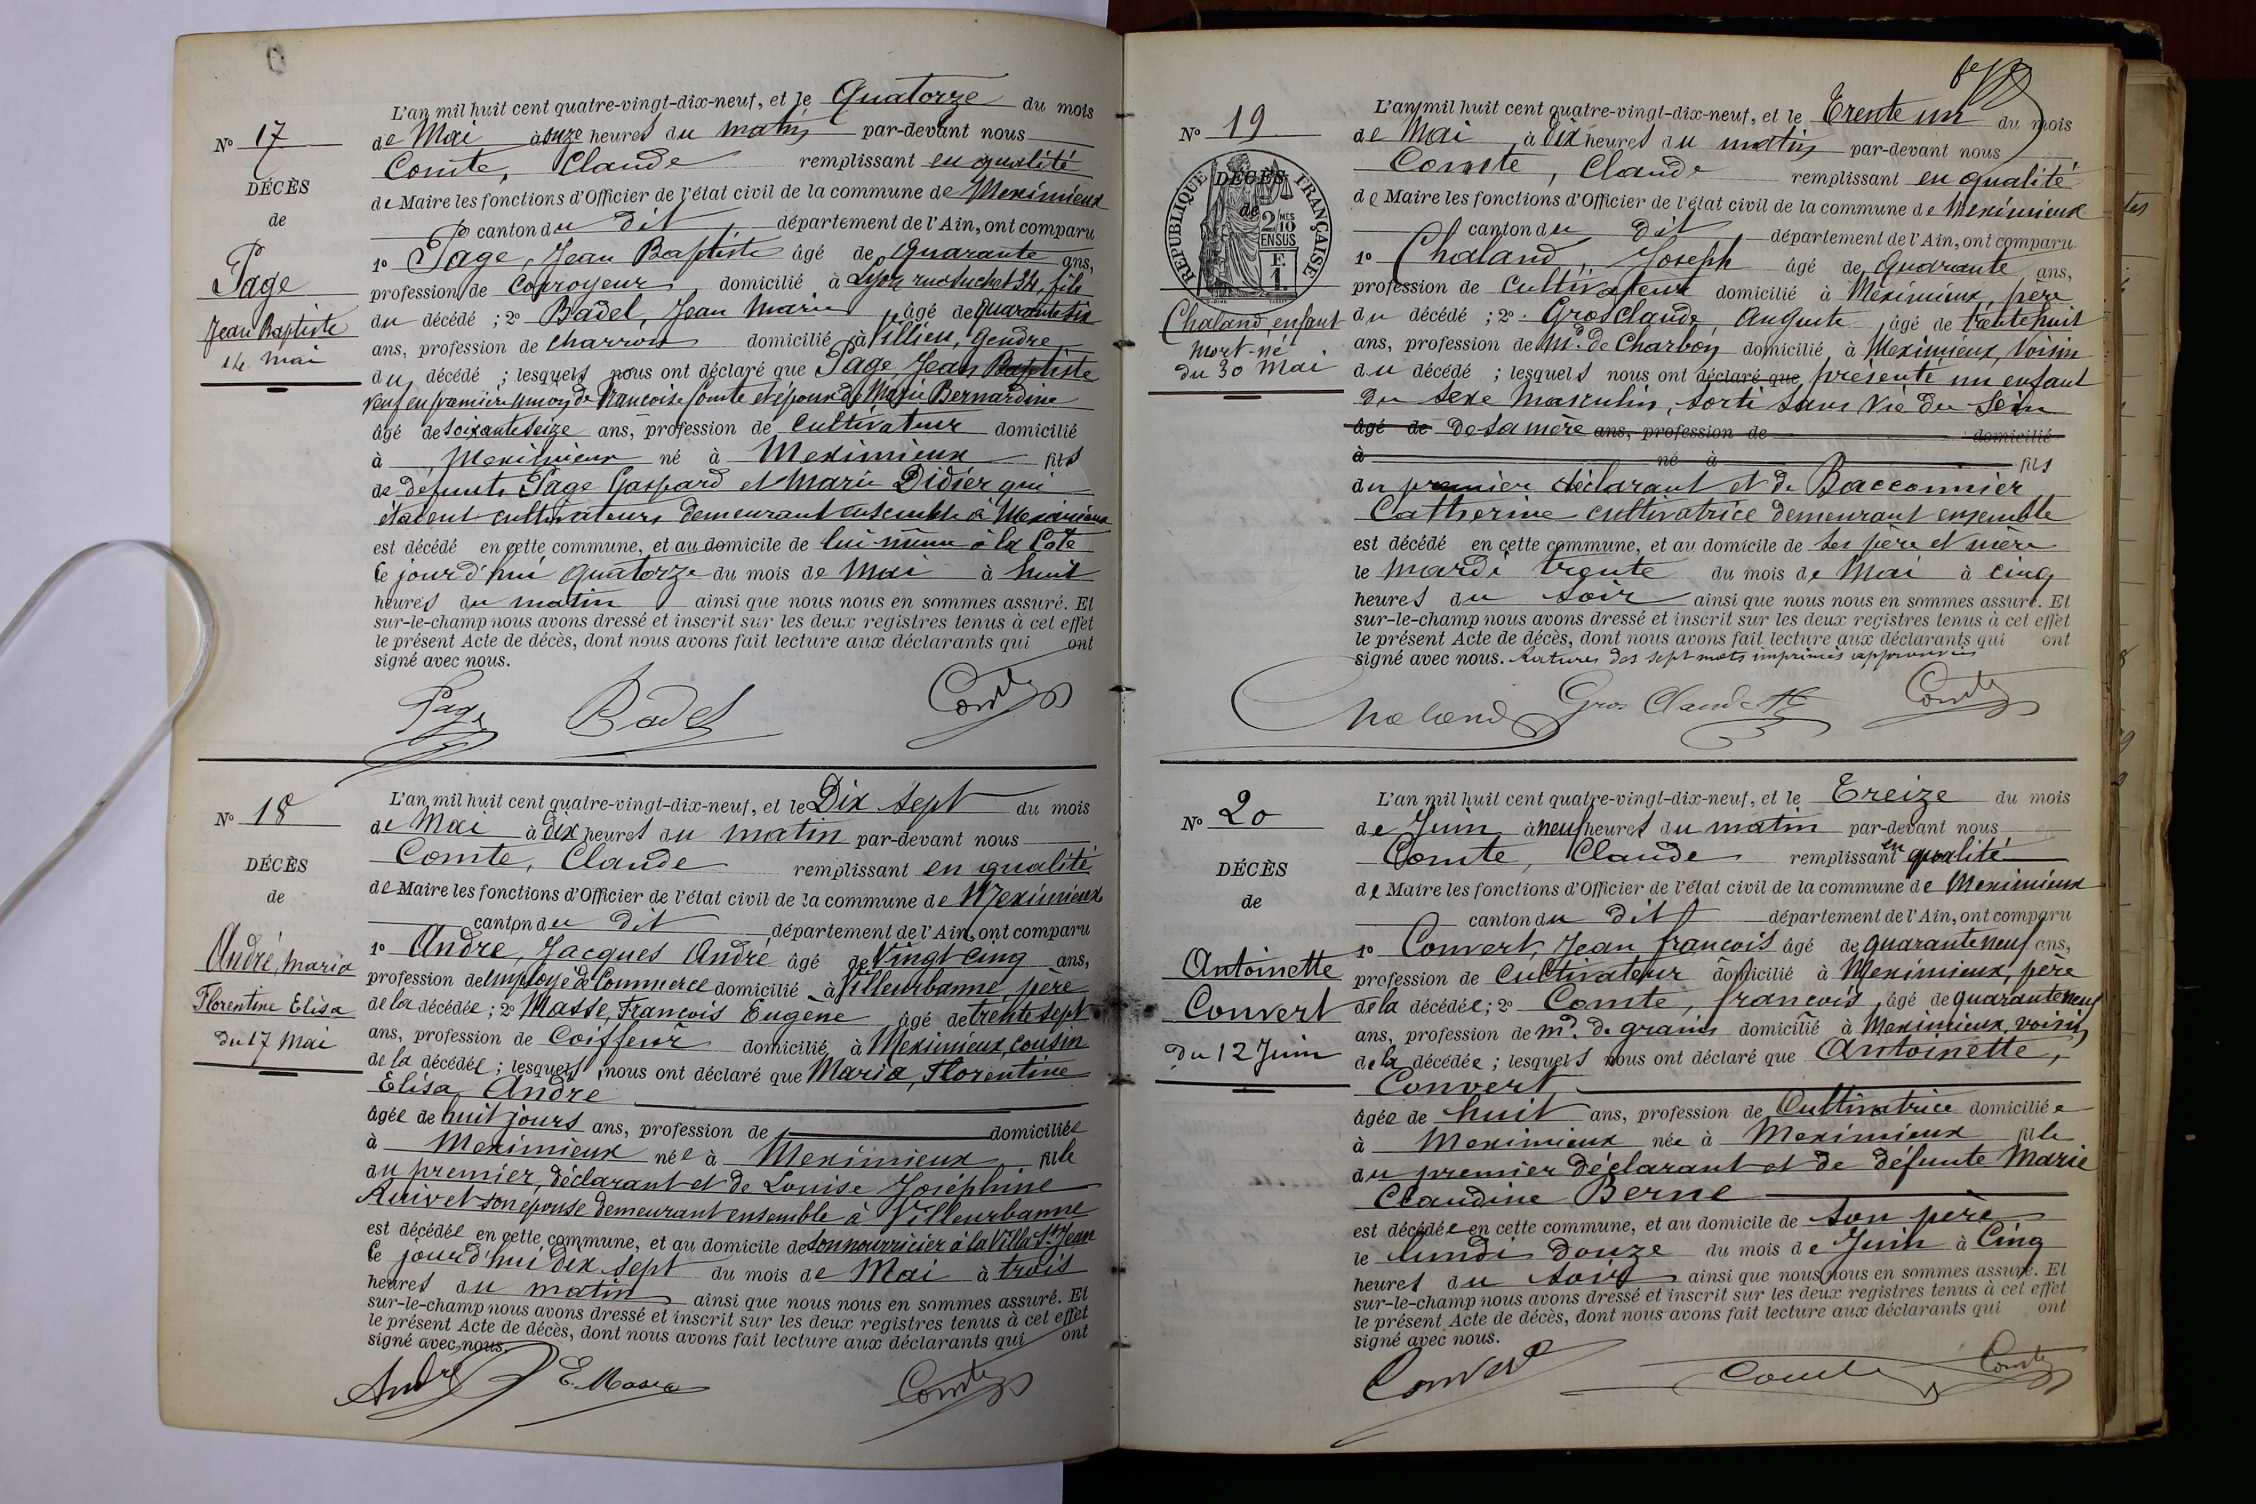 N° 17
DÉCÈS
de
Page
Jean Baptiste
14 mai
L'an mil huit cent quatre-vingt-dix-neuf, et le Quatorze du mois
de Mai à onze heures du matin par-devant nous
Comte, Claude remplissant en qualité
de Maire les fonctions d'Officier de l'état civil de la commune de Meximieux
canton du dit département de l'Ain, ont comparu
1° Page, Jean Baptiste âgé de quarante ans,
profession de Corroyeur domicilié à Lyon rue Suchet 34, fils
du décédé ; 2° Badel, Jean Marie âgé de quarante six
ans, profession de charron domicilié à Villieu, gendre
du décédé ; lesquels nous ont déclaré que Page Jean Baptiste
veuf en première union de Françoise Comte et époux de Marie Bernardine
âgé de soixante seize ans, profession de Cultivateur domicilié
à Meximieux né à Meximieux fils
de défunts Page Gaspard et Marie Didier qui
étaient cultivateurs demeurant ensemble à Meximieux
est décédé en cette commune, et au domicile de lui même à la Côte
ce jourd'hui quatorze du mois de Mai à huit
heures du matin ainsi que nous nous en sommes assuré. Et
sur-le-champ nous avons dressé et inscrit sur les deux registres tenus à cet effet
le présent Acte de décès, dont nous avons fait lecture aux déclarants qui ont
signé avec nous.
Page Badel Comte
N° 18
DÉCÈS
de
André, Maria
Florentine Elisa
du 17 Mai
L'an mil huit cent quatre-vingt-dix-neuf, et le Dix sept du mois
de Mai à dix heures du matin par-devant nous
Comte, Claude remplissant en qualité
de Maire les fonctions d'Officier de l'état civil de la commune de Meximieux
canton du dit département de l'Ain, ont comparu
1° André, Jacques André âgé de Vingt cinq ans,
profession de employé de Commerce domicilié à Villeurbanne, père
de la décédée ; 2° Masse, François Eugène âgé de trente sept
ans, profession de Coiffeur domicilié à Meximieux, cousin
de la décédée ; lesquels nous ont déclaré que Maria, Florentine
Elisa André
âgée de huit jours ans, profession de domiciliée
à Meximieux née à Meximieux fille
du premier déclarant et de Louise Joséphine
Ruivet son épouse demeurant ensemble à Villeurbanne
est décédée en cette commune, et au domicile de son nourricier à la Villa St Jean
ce jourd'hui Dix sept du mois de Mai à trois
heures du matin ainsi que nous nous en sommes assuré. Et
sur-le-champ nous avons dressé et inscrit sur les deux registres tenus à cet effet
le présent Acte de décès, dont nous avons fait lecture aux déclarants qui ont
signé avec nous.
André E. Masse Comte
N° 19
RÉPUBLIQUE FRANÇAISE
DÉCÈS
de
2/10 MES
EN SUS
F.
1
Chaland enfant
mort-né
du 30 Mai
L'an mil huit cent quatre-vingt-dix-neuf, et le Trente un du mois
de Mai à dix heures du matin par-devant nous
Comte, Claude remplissant en qualité
de Maire les fonctions d'Officier de l'état civil de la commune de Meximieux
canton du dit département de l'Ain, ont comparu
1° Chaland, Joseph âgé de Quarante ans,
profession de Cultivateur domicilié à Meximieux, père
du décédé ; 2° Gros Claude, Auguste âgé de trente huit
ans, profession de Md. de Charbon domicilié à Meximieux, voisin
du décédé ; lesquels nous ont déclaré que présenté un enfant
du sexe masculin, sorti sans vie du sein
âgé de de sa mère ans, profession de domicilié
à né à fils
du premier déclarant et de Bacconnier
Catherine cultivatrice demeurant ensemble
est décédé en cette commune, et au domicile de ses père et mère
le mardi trente du mois de Mai à cinq
heures du soir ainsi que nous nous en sommes assuré. Et
sur-le-champ nous avons dressé et inscrit sur les deux registres tenus à cet effet
le présent Acte de décès, dont nous avons fait lecture aux déclarants qui ont
signé avec nous. Ratures des sept mots imprimés approuvées
Chaland Gros Claude Comte
N° 20
DÉCÈS
de
Antoinette
Convert
du 12 Juin
L'an mil huit cent quatre-vingt-dix-neuf, et le Treize du mois
de Juin à neuf heures du matin par-devant nous
Comte, Claude remplissant en qualité
de Maire les fonctions d'Officier de l'état civil de la commune de Meximieux
canton du dit département de l'Ain, ont comparu
1° Convert, Jean françois âgé de quarante neuf ans,
profession de Cultivateur domicilié à Meximieux, père
de la décédée ; 2° Comte, françois, âgé de quarante neuf
ans, profession de md. de grains domicilié à Meximieux, voisin
de la décédée ; lesquels nous ont déclaré que Antoinette,
Convert
âgée de huit ans, profession de Cultivatrice domiciliée
à Meximieux née à Meximieux fille
du premier déclarant et de défunte Marie
Claudine Berne
est décédée en cette commune, et au domicile de son père
le lundi douze du mois de Juin à Cinq
heures du soir ainsi que nous nous en sommes assuré. Et
sur-le-champ nous avons dressé et inscrit sur les deux registres tenus à cet effet
le présent Acte de décès, dont nous avons fait lecture aux déclarants qui ont
signé avec nous.
Convert Comte Comte